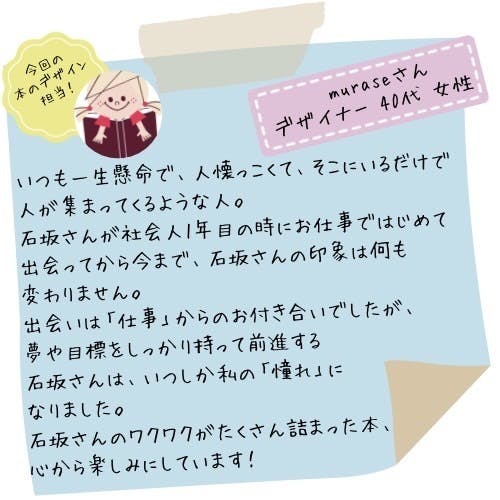 今回の
本のデザイン
担当!
muraseさん
デザイナー 40代 女性
いつも一生懸命で、人懐っこくて、そこにいるだけで
人が集まってくるような人。
石坂さんが社会人1年目の時にお仕事ではじめて
出会ってから今まで、石坂さんの印象は何も
変わりません。
出会いは「仕事」からのお付き合いでしたが、
夢や目標をしっかり持って前進する
石坂さんは、いつしか私の「憧れ」に
なりました。
石坂さんのワクワクがたくさん詰まった本、
心から楽しみにしています!